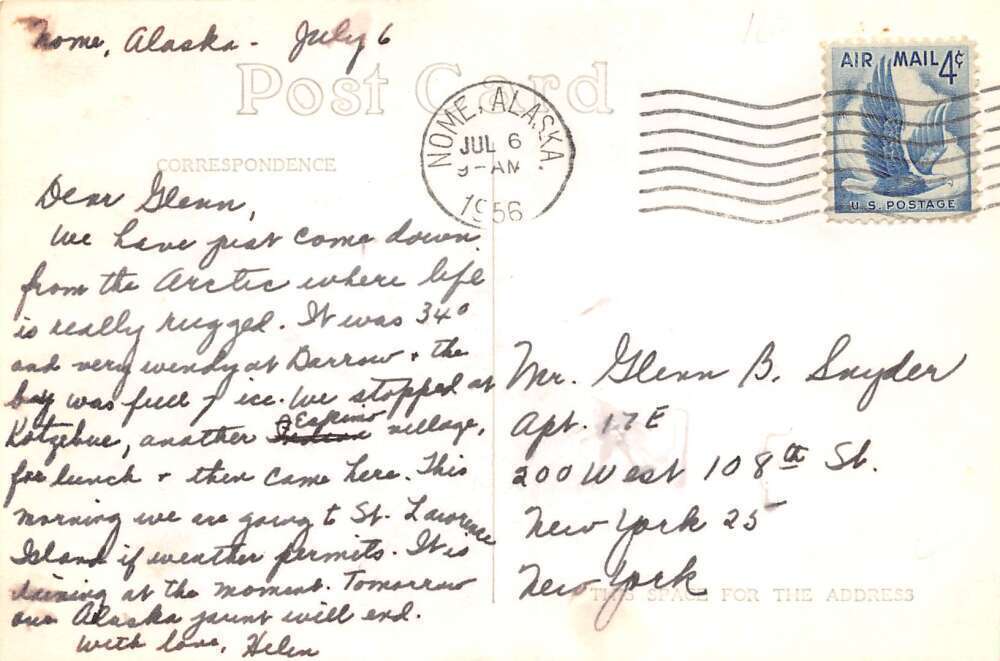 Nome, Alaska - July 6
Post Card
AIR MAIL 4¢
U.S. POSTAGE
NOME, ALASKA.
JUL 6
9-AM
1956
CORRESPONDENCE
Dear Glenn,
We have just come down
from the Arctic where life
is really rugged. It was 34°
and very windy at Barrow + the
bay was full of ice. We stopped at
Kotzebue, another Eskimo village,
for lunch + then came here. This
morning we are going to St. Lawrence
Island if weather permits. It is
raining at the moment. Tomorrow
our Alaska jaunt will end.
With love, Helen
Mr. Glenn B. Snyder
Apt. 17E
200 West 108th St.
New York 25
New York
THIS SPACE FOR THE ADDRESS